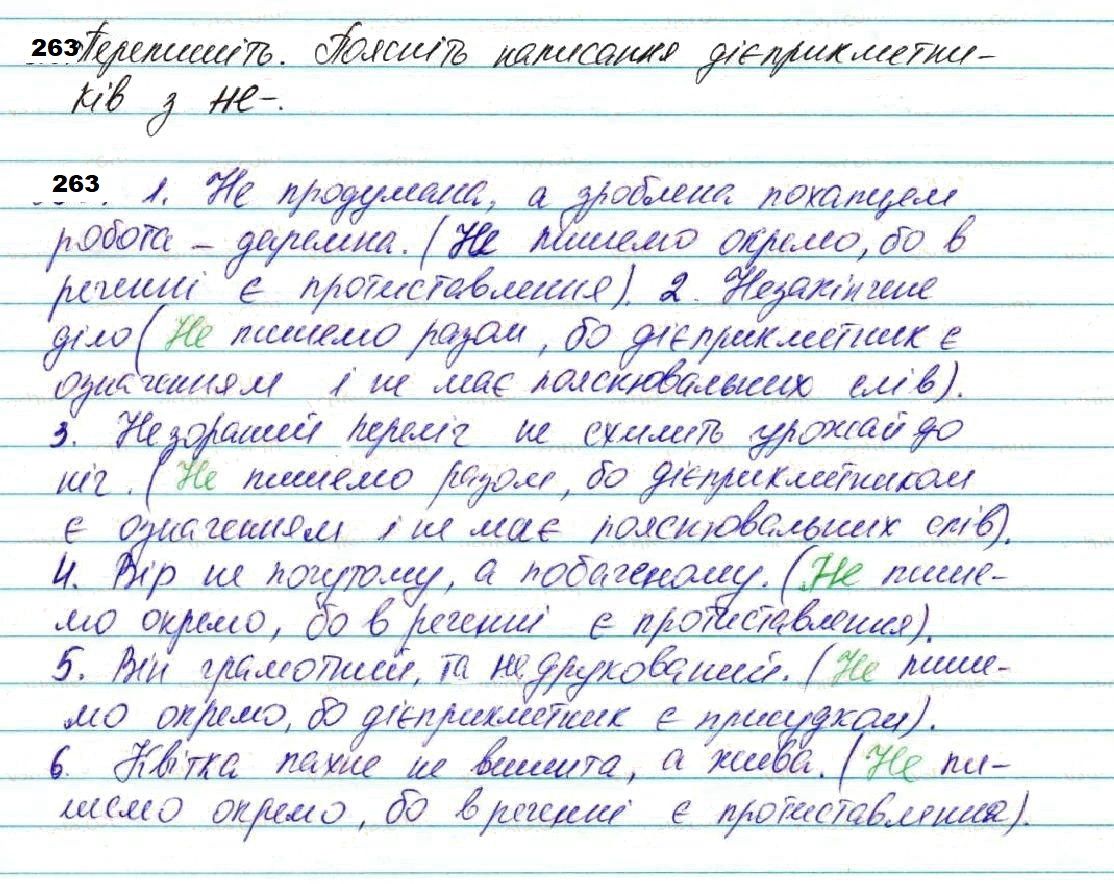 263 Перепишіть. Поясніть написання дієприкметни-
ків з не-.
263 1. Не продумана, а зроблена похапцем
робота – даремна. (Не пишемо окремо, бо в
реченні є протиставлення). 2. Незакінчене
діло (Не пишемо разом, бо дієприкметник є
означенням і не має пояснювальних слів).
3. Незораний переліг не схилить урожай до
ніг. (Не пишемо разом, бо дієприкметником
є означенням і не має пояснювальних слів).
4. Вір не почутому, а побаченому. (Не пише-
мо окремо, бо в реченні є протиставлення).
5. Він грамотний, та не друкований. (Не пише-
мо окремо, бо дієприкметник є присудком).
6. Квітка пахне не вишита, а жива. (Не пи-
шемо окремо, бо в реченні є протиставлення).